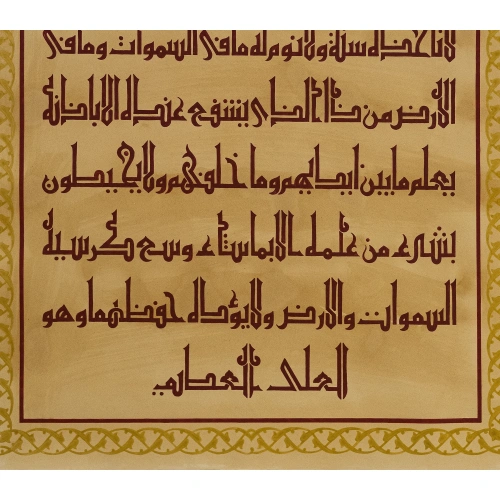 لا تأخذه سنة ولا نوم له ما في السموات وما في
الأرض من ذا الذي يشفع عنده إلا بإذنه
يعلم ما بين أيديهم وما خلفهم ولا يحيطون
بشيء من علمه إلا بما شاء وسع كرسيه
السموات والأرض ولا يؤده حفظهما وهو
العلي العظيم